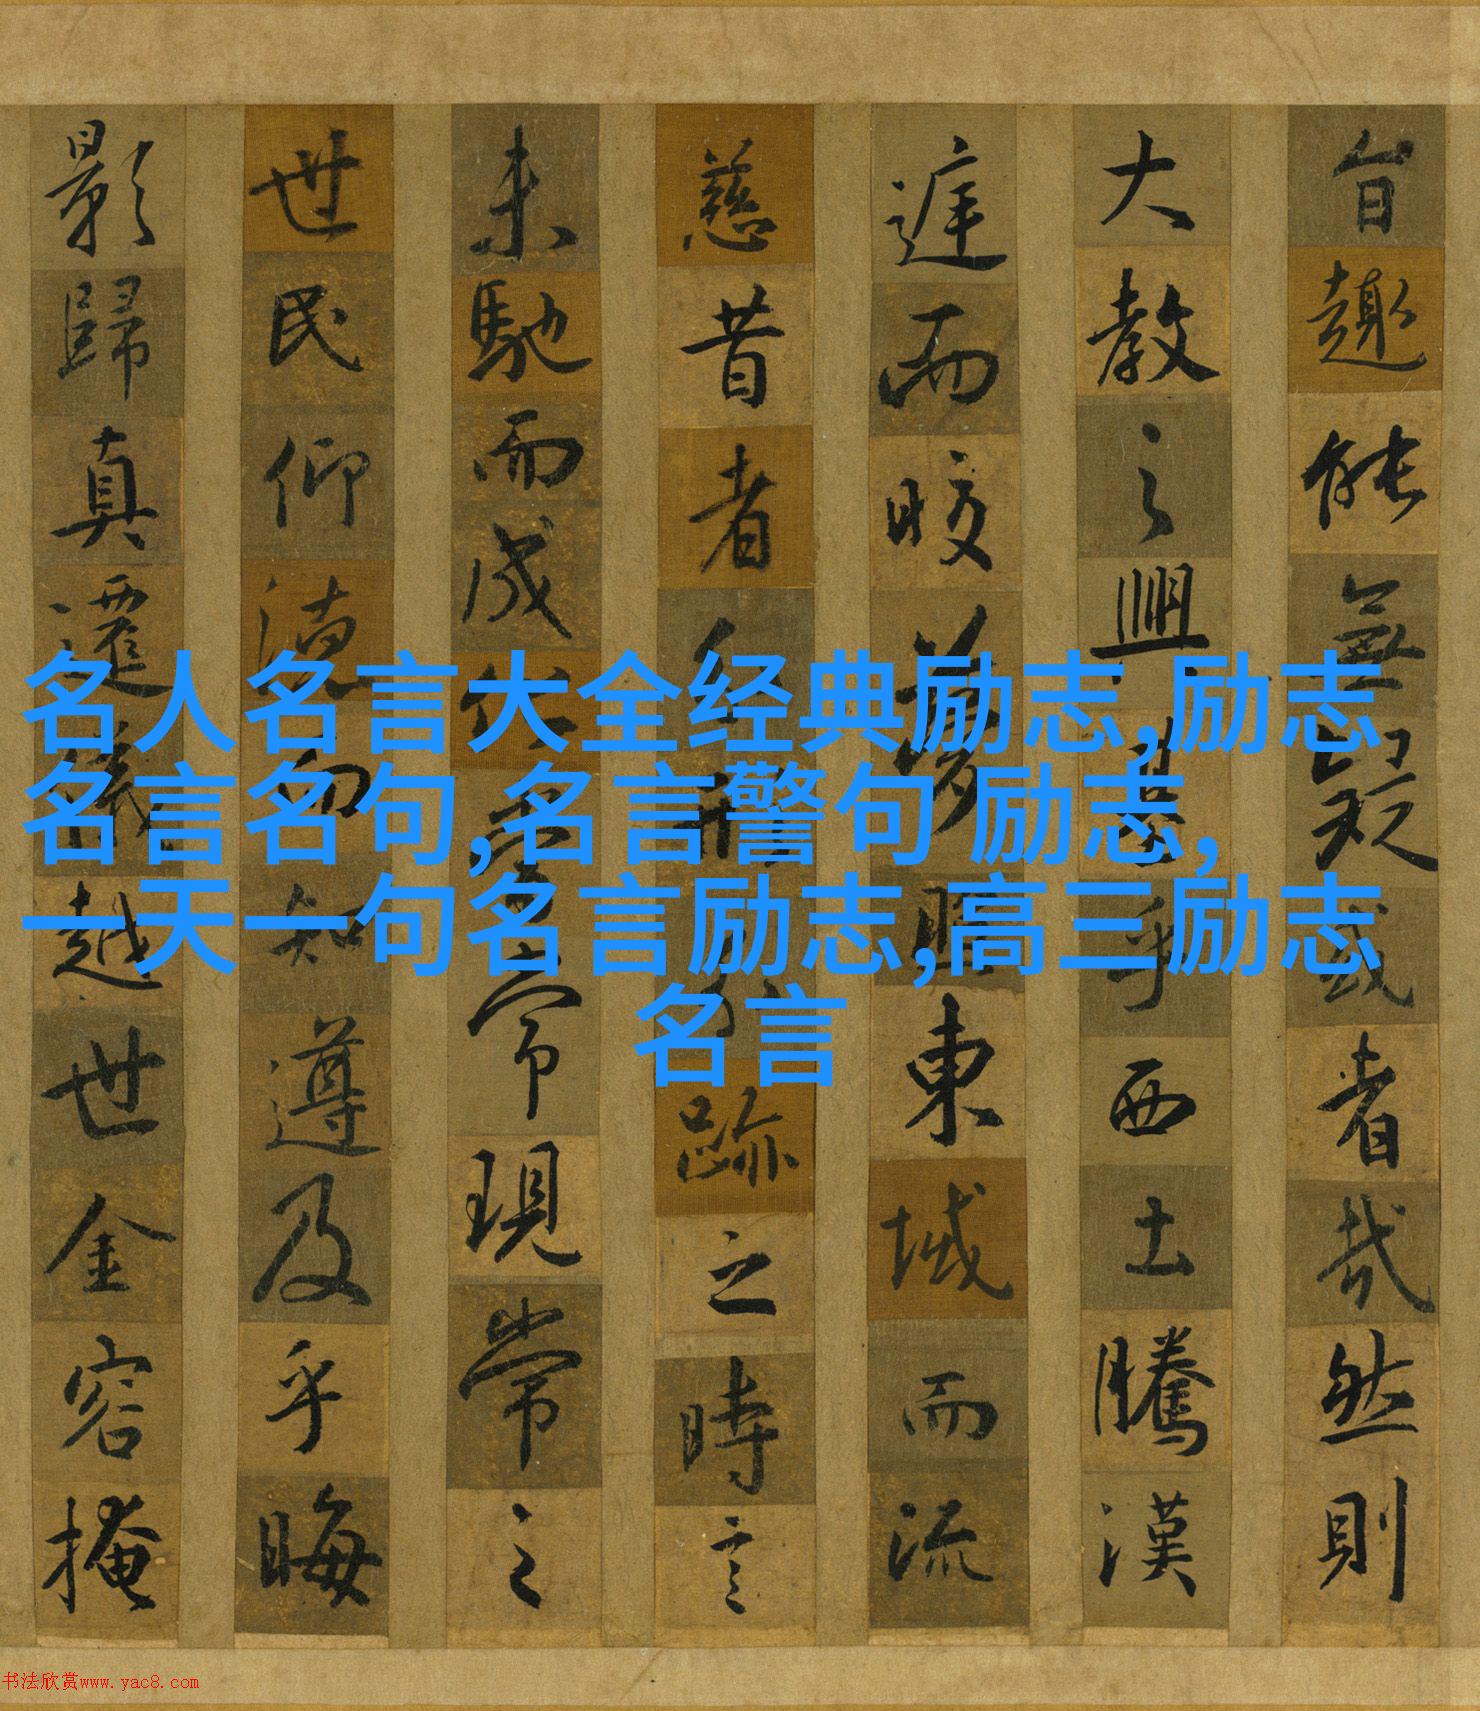 旨趣能無疑惑者哉然則
大教之興基乎西土騰漢
庭而皎夢照東域而流
慈昔者形跡之時言
未馳而成常現常之
世民仰德而知遵及乎晦
影歸真遷儀越世金容掩
名人名言大全经典励志,励志
名言名句,名言警句 励志,
一天一句名言励志,高三励志
名言
书法欣赏www.yac8.com